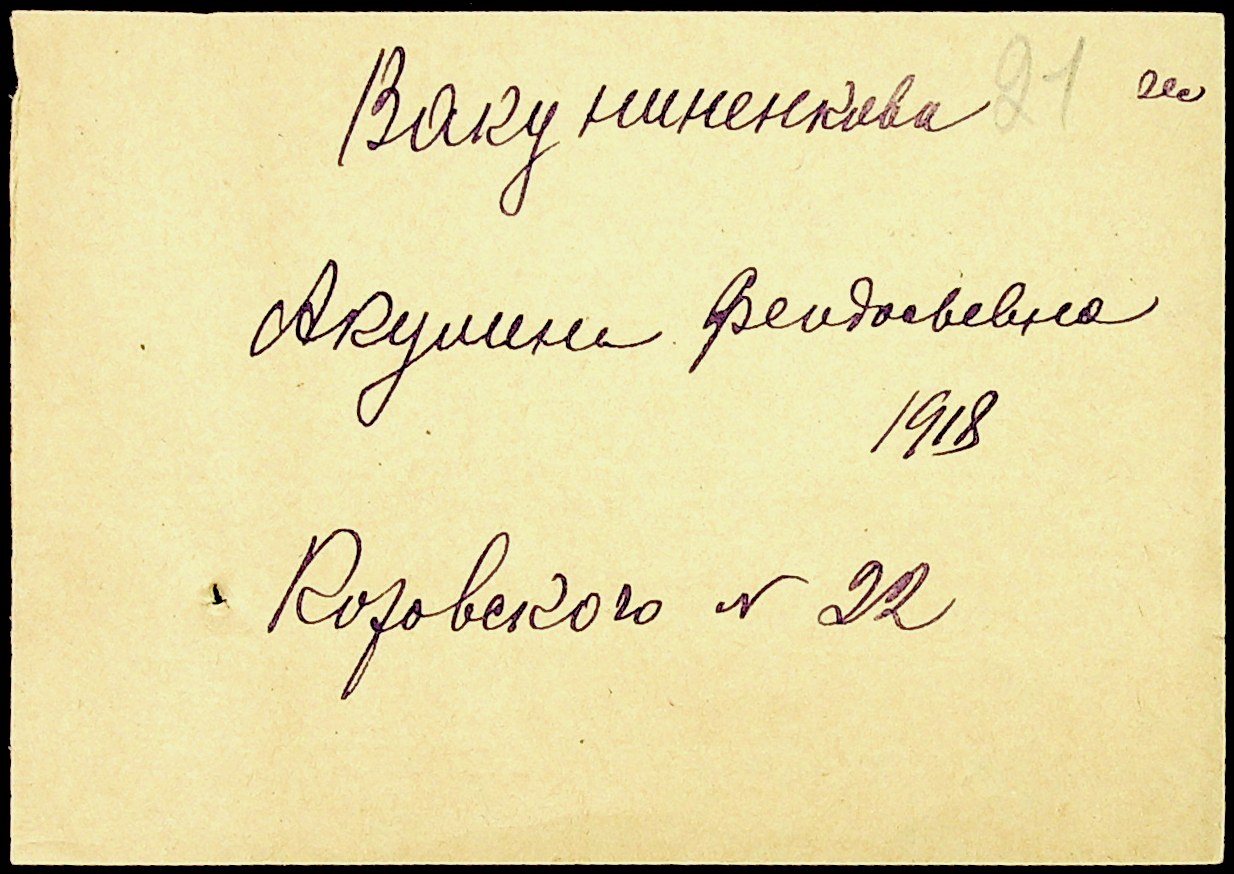 Вакуниненкова 21
Акулина Феодосьевна
1918
Козовского № 22